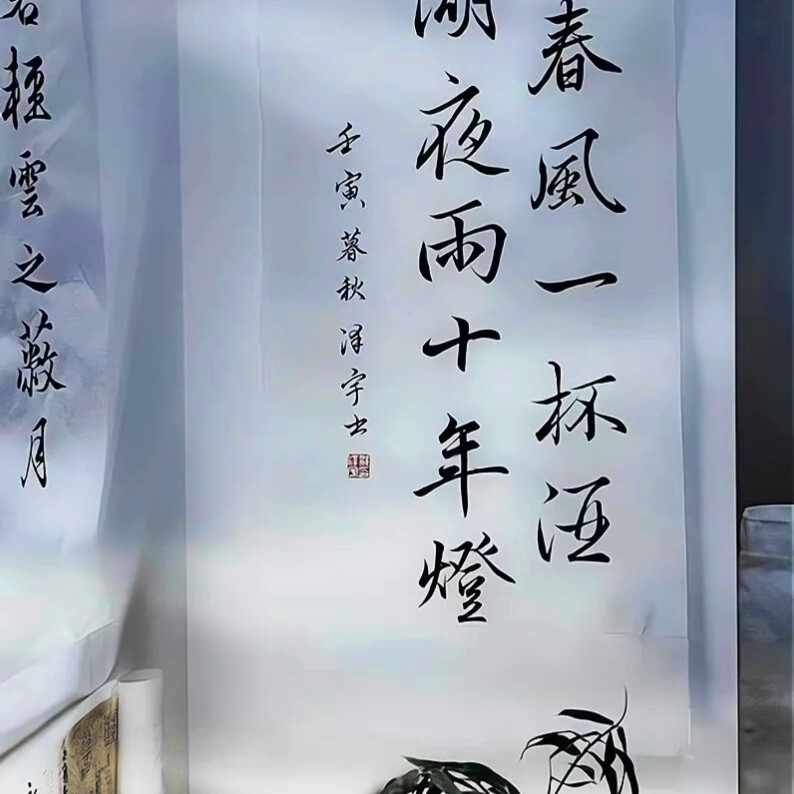 春風一杯酒
湖夜雨十年燈
壬寅暮秋泽宇书
若輕雲之蔽月